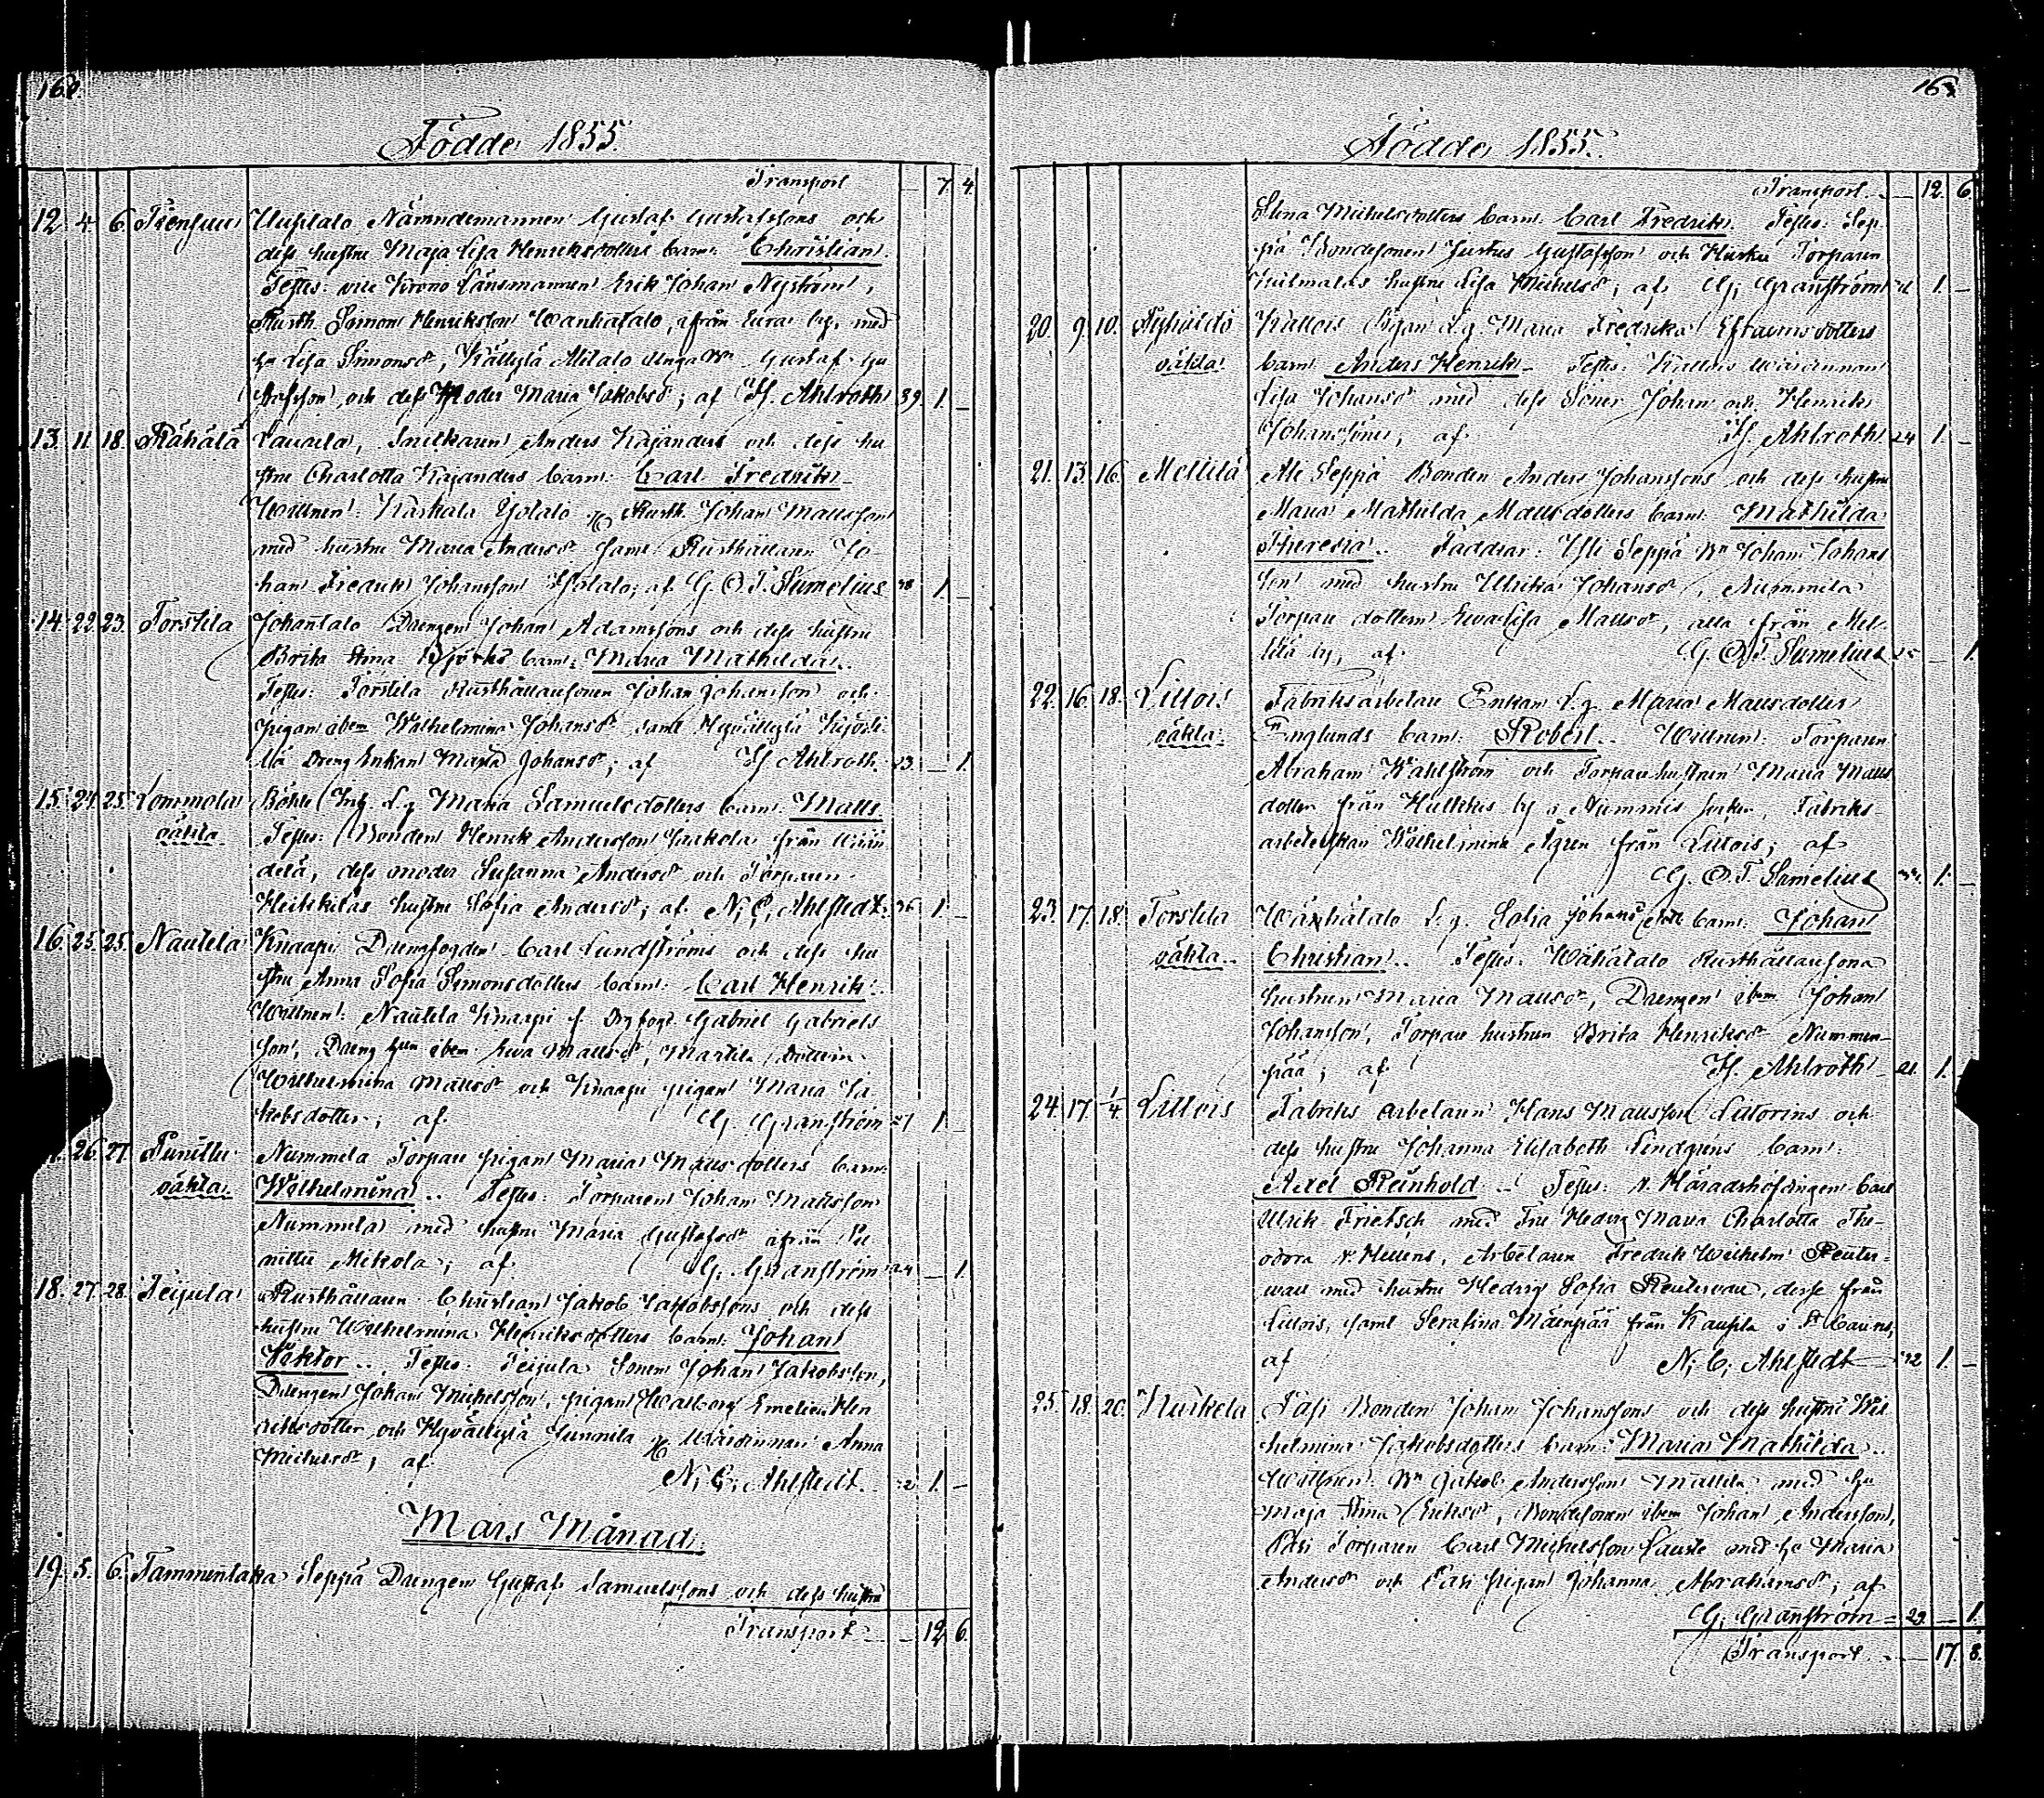 162
Födde 1855.
Transport — 7. 4.
12. 4. 6. Nämndemannen Gustaf Gustafssons och
dess hustru Maja Lisa Henriksdotters barn: Christian.
Testes: vice Krono Länsmannen Erik Johan Nyström,
Rusth. Simon Henriksson Wanhatalo, från Eura by, med
hu Lisa Simonsdr, Källylä Alitalo unga Gustaf Gu
stafsson, och dess Moder Maria Jakobsdr; af H. Ahlroth 39. 1. —
13. 11. 18. Rähälä Anders Kajanders och dess hu
stru Charlotta Kajanders barn: Carl Fredrik
Wittnen: Karhala Yotalo Rusth. Johan Mattsson
med hustru Maria Andersdr samt Rusthållaren Jo
han Fredrik Johansson af G. O. T. Sumelius 38 1 —
14. 22. 23. Torstila Johantalo Drengen Johan Adamssons och dess hustru
Brita Stina Björks barn: Maria Mathilda..
Testes: Torstila Rusthållaresonen Johan Johansson och
pigan ibm Wilhelmina Johansdr samt
Dreng Enkan Maria Johansdr; af H Ahlroth. 23 — 1.
15. 24. 25. Lommola L. g. Maria Samuelsdotters barn: Matts.
oäkta. Testes: Bonden Henrik Andersson Jaakola från
delä, dess moder Susanna Andersdr och Torparen
Heikkiläs hustru Sofia Andersdr; af N. C. Ahlstedt. 36 1. —
16. 25. 25. Nautela Knaapi Drengfogden Carl Lundströms och dess hu
stru Anna Sofia Simonsdotters barn: Carl Henrik.
Wittnen: Nautela Knaapi f. Drgfogd. Gabriel Gabriels
son, Dreng hun ibm Eva Mattsdr, Martila dottern
Wilhelmina Mattsdr och Knaapi pigan Maria Ja
kobsdotter; af G. Granström 27 1 —
26. 27. Punittu Nummela Torpare pigan Maria Mattsdotters barn:
oäkta. Wilhelmina.. Testes: Torparen Johan Mattsson
Nummela med hustru Maria Gustafsdr ifrån Pu
nittu Mikola; af G. Granström 24 — 1.
18. 27. 28. Teijula Rusthållaren Christian Jakob Jakobssons och dess
hustru Wilhelmina Henriksdotters barn: Johan
Viktor.. Testes: Teijula Sonen Johan Jakobsson,
Drengen Johan Michelsson, pigan Walborg Emelie Hen
riksdotter och Hyvättylä Junnila Wärdinnan Anna
Michelsdr, af N. C. Ahlstedt. 32 1. —
Mars Månad.
19. 5. 6. Tammentaka Seppä Drengen Gustaf Samuelssons och dess hustru
Transport — 12. 6.
163
Födde 1855.
Transport. — 12. 6.
Stina Michelsdotters barn: Carl Fredrik. Testes: Sep
pä Bondesonen Justus Gustafsson och Torparen
hustru Lisa Michelsdr; af G. Granström 1. —
20. 9. 10. Pigan L. g. Maria Fredrika Efraimsdotters
oäkta. barn: Anders Henrik. Testes: Wärdinnan
Lisa Johansdr med dess Söner Johan och Henrik
Johanssöner, af H. Ahlroth 24 1. —
21. 13. 16. Mellilä Ale Seppä Bonden Anders Johanssons och dess hustru
Maria Mathilda Mattsdotters barn: Mathilda
Theresia.. Faddrar: Yli Seppä Bn Johan Johans
son med hustru Ulrika Johansdr, Nummela
Torpare dottern Eva Lisa Mattsdr, alla från Mel
lilä by, af G. O. T. Sumelius 25 — 1.
22. 16. 18. Littois Fabriksarbetare Enkan L. g. Maria Mattsdotter
oäkta. Englunds barn: Robert.. Wittnen: Torparen
Abraham Wahlström och Torparehustrun Maria Matts
dotter från by i Nummis socken, Fabriks-
arbeterskan Wilhelmina Ågren från Littois; af
G. O. T. Sumelius 1. —
23. 17. 18. Torstila Wähätalo L. g. Sofia Johansdotters barn: Johan
oäkta.. Christian.. Testes: Wähätalo Rusthållaresona
hustrun Maria Mattsdr, Drengen ibm Johan
Johansson, Torpare hustrun Brita Henriksdr Nummen-
pää; af H. Ahlroth 21. 1. —
24. 17. 1/4. Littois Fabriks arbetaren Hans Mattsson Littorins och
dess hustru Johanna Elisabeth Lindgrens barn:
Axel Reinhold.. Testes: v. Häradshöfdingen Carl
Ulrik Frietsch med Fru Hedvig Maria Charlotta The-
odora v. Hellens, Arbetaren Fredrik Wilhelm Reuter-
wall med hustru Hedvig Sofia Reuterwall, desse från
Littois, samt Serafina Mäenpää från Kauppila i St Carins,
af N. C. Ahlstedt 32 1. —
25. 18. 20. Kurkela Pasi Bonden Johan Johanssons och dess hustru Wil
helmina Jakobsdotters barn: Maria Mathilda..
Wittnen: Bn Jakob Andersson Mattila med hu
Maja Stina Eriksdr, Bondesonen ibm Johan Andersson,
Pasi Torparen Carl Michelsson Lauste med hu Maria
Andersdr och Pasi pigan Johanna Abrahamsdr; af
G. Granström 29. — 1.
Transport. — 17. 8.